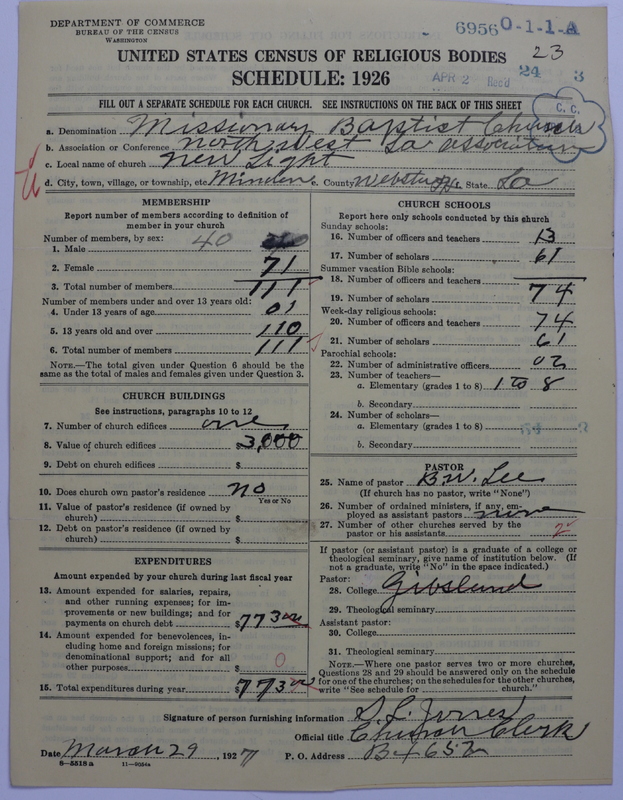 DEPARTMENT OF COMMERCE
BUREAU OF THE CENSUS
WASHINGTON
6956 0-1-1-A
23
UNITED STATES CENSUS OF RELIGIOUS BODIES
SCHEDULE: 1926
APR 2 Rec'd 24 3
FILL OUT A SEPARATE SCHEDULE FOR EACH CHURCH. SEE INSTRUCTIONS ON THE BACK OF THIS SHEET
C. C.
a. Denomination Missionary Baptist Church
b. Association or Conference north West La association
c. Local name of church New Light
d. City, town, village, or township, etc. Minden e. County Webster f. State La
MEMBERSHIP
Report number of members according to definition of
member in your church
Number of members, by sex:
1. Male 40
2. Female 71
3. Total number of members 111
Number of members under and over 13 years old:
4. Under 13 years of age 01
5. 13 years old and over 110
6. Total number of members 111
NOTE.—The total given under Question 6 should be
same as the total of males and females given under Question 3.
CHURCH BUILDINGS
See instructions, paragraphs 10 to 12
7. Number of church edifices one
8. Value of church edifices $3,000
9. Debt on church edifices $
10. Does church own pastor's residence no
Yes or No
11. Value of pastor's residence (if owned by
church) $
12. Debt on pastor's residence (if owned by
church) $
EXPENDITURES
Amount expended by your church during last fiscal year
13. Amount expended for salaries, repairs,
and other running expenses; for im-
provements or new buildings; and for
payments on church debt $773
14. Amount expended for benevolences, in-
cluding home and foreign missions; for
denominational support; and for all
other purposes $ 0
15. Total expenditures during year $773
CHURCH SCHOOLS
Report here only schools conducted by this church
Sunday schools:
16. Number of officers and teachers 13
17. Number of scholars 61
Summer vacation Bible schools:
18. Number of officers and teachers
19. Number of scholars 74
Week-day religious schools:
20. Number of officers and teachers 74
21. Number of scholars 61
Parochial schools:
22. Number of administrative officers 02
23. Number of teachers—
a. Elementary (grades 1 to 8) 1 to 8
b. Secondary
24. Number of scholars—
a. Elementary (grades 1 to 8)
b. Secondary
PASTOR
25. Name of pastor B.W. Lee
(If church has no pastor, write "None")
26. Number of ordained ministers, if any, em-
ployed as assistant pastors none
27. Number of other churches served by the
pastor or his assistants 2
If pastor (or assistant pastor) is a graduate of a college or
theological seminary, give name of institution below. (If
not a graduate, write "No" in the space indicated.)
Pastor:
28. College Gibsland
29. Theological seminary
Assistant pastor:
30. College
31. Theological seminary
NOTE.—Where one pastor serves two or more churches,
Questions 28 and 29 should be answered only on the schedule
for one of the churches; on the schedules for the other churches,
write "See schedule for church."
Signature of person furnishing information S. L. Jones
Official title Church Clerk
Date March 29, 1927 P. O. Address Box 652
8—5518 a 11—9054a